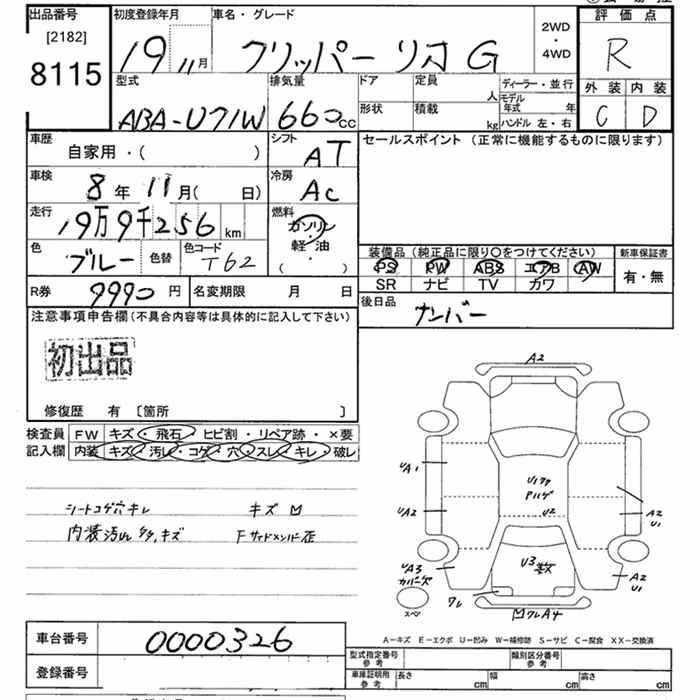 出品番号
[2182]
8115
初度登録年月
19
11月
車名・グレード
クリッパー リオ G
2WD
・
4WD
評価点
R
外装 内装
C D
型式
ABA-U71W
排気量
660cc
ドア
定員
人
形状
積載
kg
ディーラー・並行
モデル年式 年
ハンドル 左・右
車歴
自家用・( )
シフト
AT
セールスポイント (正常に機能するものに限ります)
車検
8年 11月( 日)
冷房
AC
走行
19万9千256 km
燃料
ガソリン
軽油
( ・ )
色
ブルー
色替
色コード
T62
装備品 (純正品に限り○をつけてください)
PS PW ABS エアB AW
SR ナビ TV カワ
新車保証書
有・無
R券
9990 円
名変期限 月 日
後日品
ナンバー
注意事項申告欄(不具合内容等は具体的に記入して下さい)
初出品
修復歴 有 〔箇所 〕
検査員記入欄
FW キズ・飛石・ヒビ割・リペア跡・×要
内装 キズ・汚レ・コゲ・穴・スレ・キレ・破レ
シートコゲ穴キレ
キズ
内装汚れ
キズ
Fサイドメンバー歪
A2
UA1
UA2
UA3
カバー欠
U2
U3数
A2
U1
A2
U1
ワレ
ワレA4
スペア
A-キズ E-エクボ U-凹み W-補修跡 S-サビ C-腐食 XX-交換済
車台番号
0000326
登録番号
型式指定番号
参考
類別区分番号
参考
車庫証明用
参考
長さ cm 幅 cm 高さ cm